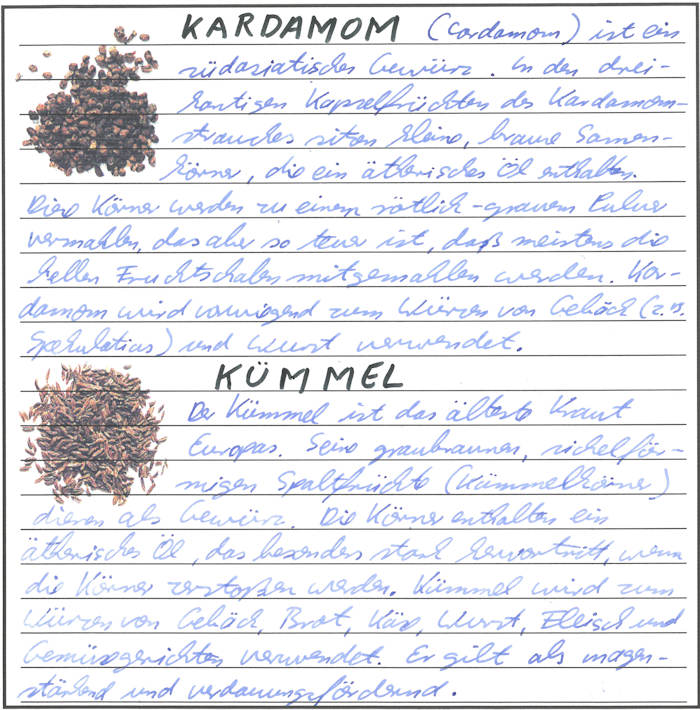 KARDAMOM (Cardamom) ist ein
südasiatisches Gewürz. In den drei-
kantigen Kapselfrüchten des Kardamom-
strauches sitzen kleine, braune Samen-
körner, die ein ätherisches Öl enthalten.
Diese Körner werden zu einem rötlich-grauem Pulver
vermahlen, das aber so teuer ist, daß meistens die
hellen Fruchtschalen mitgemahlen werden. Kar-
damom wird vorwiegend zum Würzen von Gebäck (z.B.
Spekulatius) und Wurst verwendet.
KÜMMEL
Der Kümmel ist das älteste Kraut
Europas. Seine graubraunen, sichelför-
migen Spaltfrüchte (Kümmelkörner)
dienen als Gewürz. Die Körner enthalten ein
ätherisches Öl, das besonders stark hervortritt, wenn
die Körner zerstoßen werden. Kümmel wird zum
Würzen von Gebäck, Brot, Käse, Wurst, Fleisch und
Gemüsegerichten verwendet. Er gilt als magen-
stärkend und verdauungsfördernd.